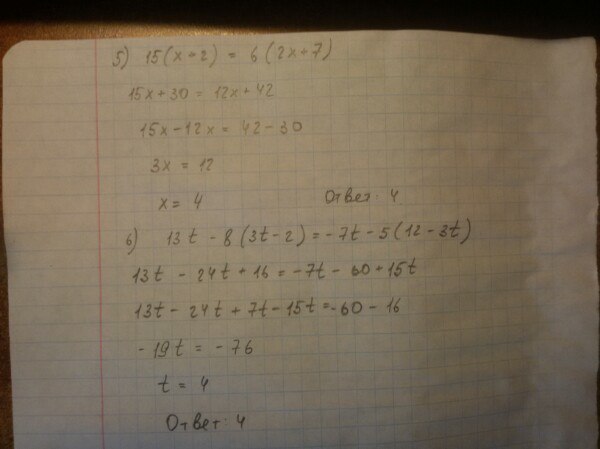 5) 15(x+2) = 6(2x+7)
15x+30 = 12x+42
15x-12x = 42-30
3x = 12
x = 4 Ответ: 4
6) 13t - 8(3t-2) = -7t - 5(12-3t)
13t - 24t + 16 = -7t - 60 + 15t
13t - 24t + 7t - 15t = -60 - 16
-19t = -76
t = 4
Ответ: 4